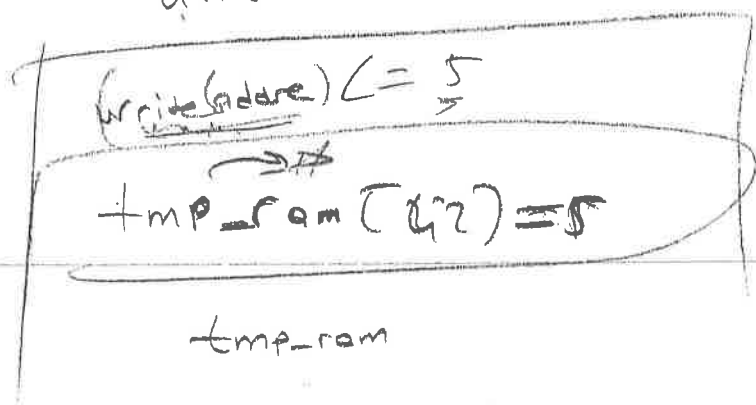 write(addre) <= 5
tmp_ram( ) = 5
tmp_ram